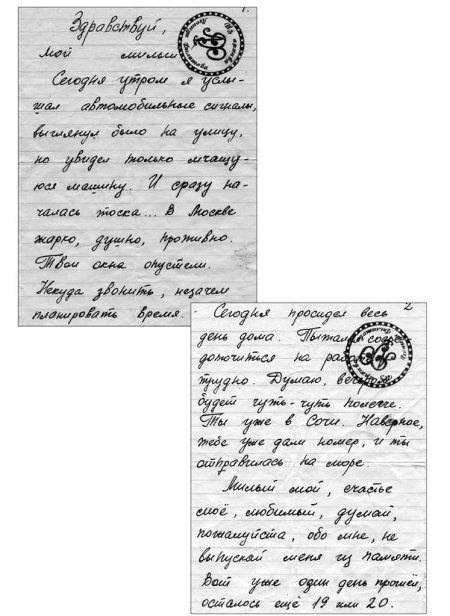 1.
Здравствуй,
мой милый
Сегодня утром я услы-
шал автомобильные сигналы,
выглянул было на улицу,
но увидел только мчащу-
юся машину. И сразу на-
чалась тоска... В Москве
жарко, душно, противно.
Твои окна опустели.
Некуда звонить, незачем
планировать время.
2
Сегодня просидел весь
день дома. Пытался сосре-
доточиться на
трудно. Думаю, вечером
будет чуть-чуть полегче.
Ты уже в Сочи. Наверное,
тебе уже дали номер, и ты
отправилась на море.
Милый мой, счастье
моё, любимый, думай,
пожалуйста, обо мне, не
выпускай меня из памяти.
Вот уже один день прошёл,
осталось ещё 19 или 20.